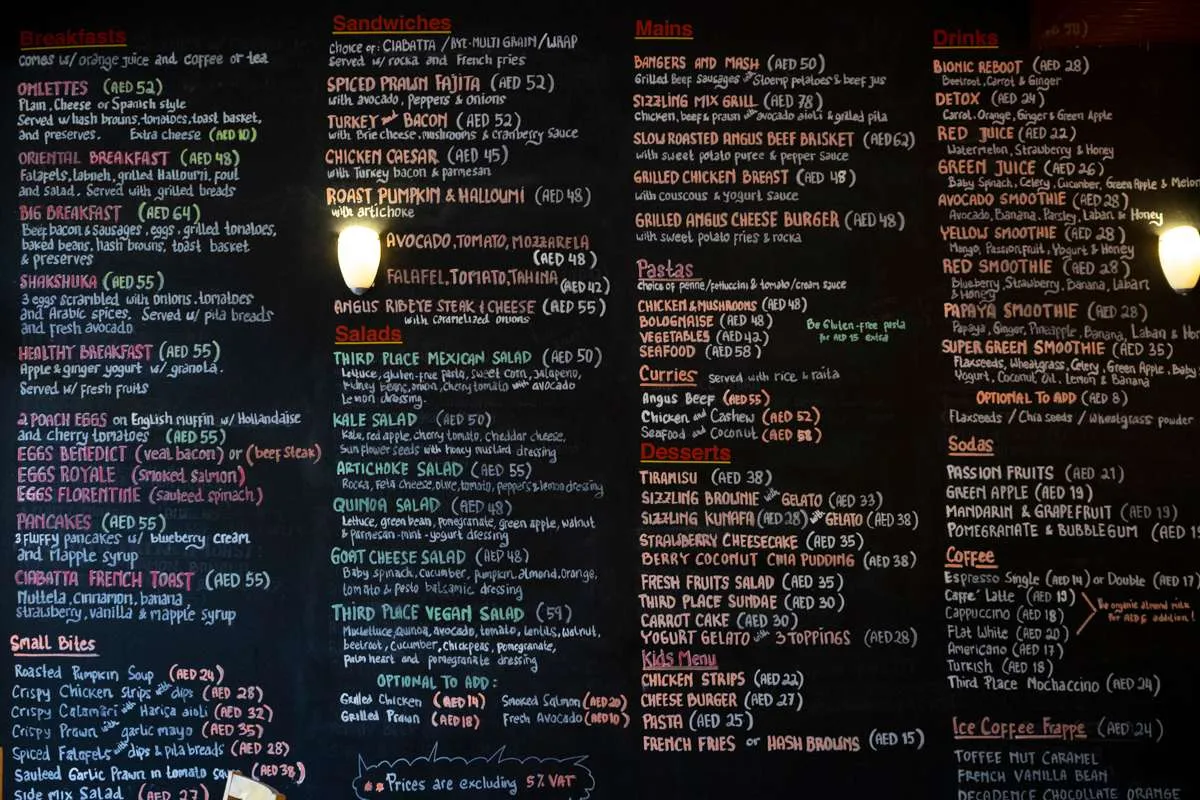 Breakfasts
comes w/ orange juice and coffee or tea
OMLETTES (AED 52)
Plain, Cheese or Spanish style
Served w/ hash browns, tomatoes, toast basket,
and preserves. Extra cheese (AED 10)
ORIENTAL BREAKFAST (AED 48)
Falafels, labneh, grilled Halloumi, foul
and salad. Served with grilled breads
BIG BREAKFAST (AED 64)
Beef bacon & sausages, eggs, grilled tomatoes,
baked beans, hash browns, toast basket
& preserves
SHAKSHUKA (AED 55)
3 eggs scrambled with onions, tomatoes
and Arabic spices. Served w/ pita breads
and fresh avocado
HEALTHY BREAKFAST (AED 55)
Apple & ginger yogurt w/ granola.
Served w/ fresh fruits
2 POACH EGGS on English muffin w/ Hollandaise
and cherry tomatoes (AED 55)
EGGS BENEDICT (veal bacon) or (beef steak)
EGGS ROYALE (smoked salmon)
EGGS FLORENTINE (sauteed spinach)
PANCAKES (AED 55)
3 Fluffy pancakes w/ blueberry cream
and Mapple syrup
CIABATTA FRENCH TOAST (AED 55)
Nuttela, cinnamon, banana,
strawberry, vanilla & mapple syrup
Small Bites
Roasted Pumpkin Soup (AED 24)
Crispy Chicken Strips with dips (AED 28)
Crispy Calamari with Harisa aioli (AED 32)
Crispy Prawn with garlic mayo (AED 35)
Spiced Falafels with dips & pita breads (AED 28)
Sauteed Garlic Prawn in tomato (AED 38)
Side Mix Salad (AED 27)
Sandwiches
choice of: CIABATTA / RYE-MULTI GRAIN / WRAP
Served w/ rocka and French fries
SPICED PRAWN FAJITA (AED 52)
with avocado, peppers & onions
TURKEY and BACON (AED 52)
with Brie cheese, mushrooms & cranberry sauce
CHICKEN CAESAR (AED 45)
with Turkey bacon & parmesan
ROAST PUMPKIN & HALLOUMI (AED 48)
with artichoke
AVOCADO, TOMATO, MOZZARELA
(AED 48)
FALAFEL, TOMATO, TAHINA
(AED 42)
ANGUS RIBEYE STEAK & CHEESE (AED 55)
with caramelized onions
Salads
THIRD PLACE MEXICAN SALAD (AED 50)
Lettuce, gluten-free pasta, sweet corn, jalapeno,
kidney beans, onion, cherry tomato with avocado
Lemon dressing.
KALE SALAD (AED 50)
Kale, red apple, cherry tomato, cheddar cheese,
Sun flower seeds with honey mustard dressing
ARTICHOKE SALAD (AED 55)
Rocka, Feta cheese, olive, tomato, peppers & lemon dressing
QUINOA SALAD (AED 48)
Lettuce, green bean, pomegranate, green apple, walnut
& parmesan-mint-yogurt dressing
GOAT CHEESE SALAD (AED 48)
Baby spinach, cucumber, pumpkin, almond, orange,
tomato & pesto balsamic dressing
THIRD PLACE VEGAN SALAD (59)
Mix lettuce, Quinoa, avocado, tomato, lentils, walnut,
beetroot, cucumber, chickpeas, pomegranate,
palm heart and pomegranate dressing
OPTIONAL TO ADD:
Grilled Chicken (AED 14) Smoked Salmon (AED 20)
Grilled Prawn (AED 18) Fresh Avocado (AED 10)
** Prices are excluding 5% VAT
Mains
BANGERS AND MASH (AED 50)
Grilled Beef Sausages with Stoemp potatoes & beef jus
SIZZLING MIX GRILL (AED 78)
Chicken, beef & prawn with avocado aioli & grilled pita
SLOW ROASTED ANGUS BEEF BRISKET (AED 62)
with sweet potato puree & pepper sauce
GRILLED CHICKEN BREAST (AED 48)
with couscous & yogurt sauce
GRILLED ANGUS CHEESE BURGER (AED 48)
with sweet potato fries & rocka
Pastas
choice of penne/fettuccini & tomato/cream sauce
CHICKEN & MUSHROOMS (AED 48)
BOLOGNAISE (AED 48)
VEGETABLES (AED 42)
SEAFOOD (AED 58)
Be Gluten-free pasta
for AED 15 extra
Curries served with rice & raita
Angus Beef (AED 55)
Chicken and Cashew (AED 52)
Seafood and Coconut (AED 58)
Desserts
TIRAMISU (AED 38)
SIZZLING BROWNIE with GELATO (AED 33)
SIZZLING KUNAFA (AED 28) with GELATO (AED 38)
STRAWBERRY CHEESECAKE (AED 35)
BERRY COCONUT CHIA PUDDING (AED 38)
FRESH FRUITS SALAD (AED 35)
THIRD PLACE SUNDAE (AED 30)
CARROT CAKE (AED 30)
YOGURT GELATO with 3 TOPPINGS (AED 28)
Kids Menu
CHICKEN STRIPS (AED 22)
CHEESE BURGER (AED 27)
PASTA (AED 25)
FRENCH FRIES or HASH BROWNS (AED 15)
Drinks
BIONIC REBOOT (AED 28)
Beetroot, Carrot & Ginger
DETOX (AED 24)
Carrot, Orange, Ginger & Green Apple
RED JUICE (AED 22)
Watermelon, Strawberry & Honey
GREEN JUICE (AED 26)
Baby Spinach, Celery, Cucumber, Green Apple & Melon
AVOCADO SMOOTHIE (AED 28)
Avocado, Banana, Parsley, Laban & Honey
YELLOW SMOOTHIE (AED 28)
Mango, Passionfruit, Yogurt & Honey
RED SMOOTHIE (AED 28)
Blueberry, Strawberry, Banana, Labart
& Honey
PAPAYA SMOOTHIE (AED 28)
Papaya, Ginger, Pineapple, Banana, Laban & Hon
SUPER GREEN SMOOTHIE (AED 35)
Flaxseeds, Wheatgrass, Celery, Green Apple, Baby
Yogurt, Coconut Oil, Lemon & Banana
OPTIONAL TO ADD (AED 8)
Flaxseeds / Chia seeds / Wheatgrass powder
Sodas
PASSION FRUITS (AED 21)
GREEN APPLE (AED 19)
MANDARIN & GRAPEFRUIT (AED 19)
POMEGRANATE & BUBBLEGUM (AED 19
Coffee
Espresso Single (AED 14) or Double (AED 17)
Caffe' Latte (AED 19)
Cappuccino (AED 18)
Flat White (AED 20)
Americano (AED 17)
Turkish (AED 18)
Third Place Mochaccino (AED 24)
Be organic almond milk
for AED 6 addition!
Ice Coffee Frappe (AED 24)
TOFFEE NUT CARAMEL
FRENCH VANILLA BEAN
DECADENCE CHOCOLLATE ORANGE